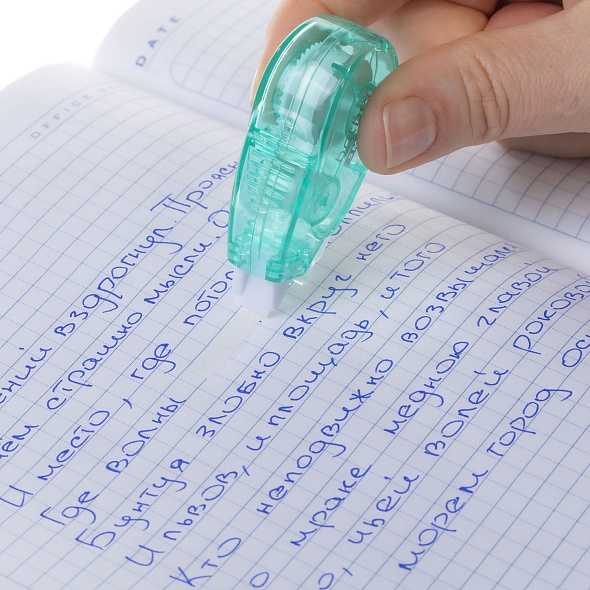 DATE
ений вздрогнул Проясн
ём страшно мысли. О
И место, где потоп
Где волны
Бунтуя злобно вкруг него
И львов, и площадь, и того
Кто неподвижно возвышал
о мраке медною главой
о, чьей волей роковой
морем город осн